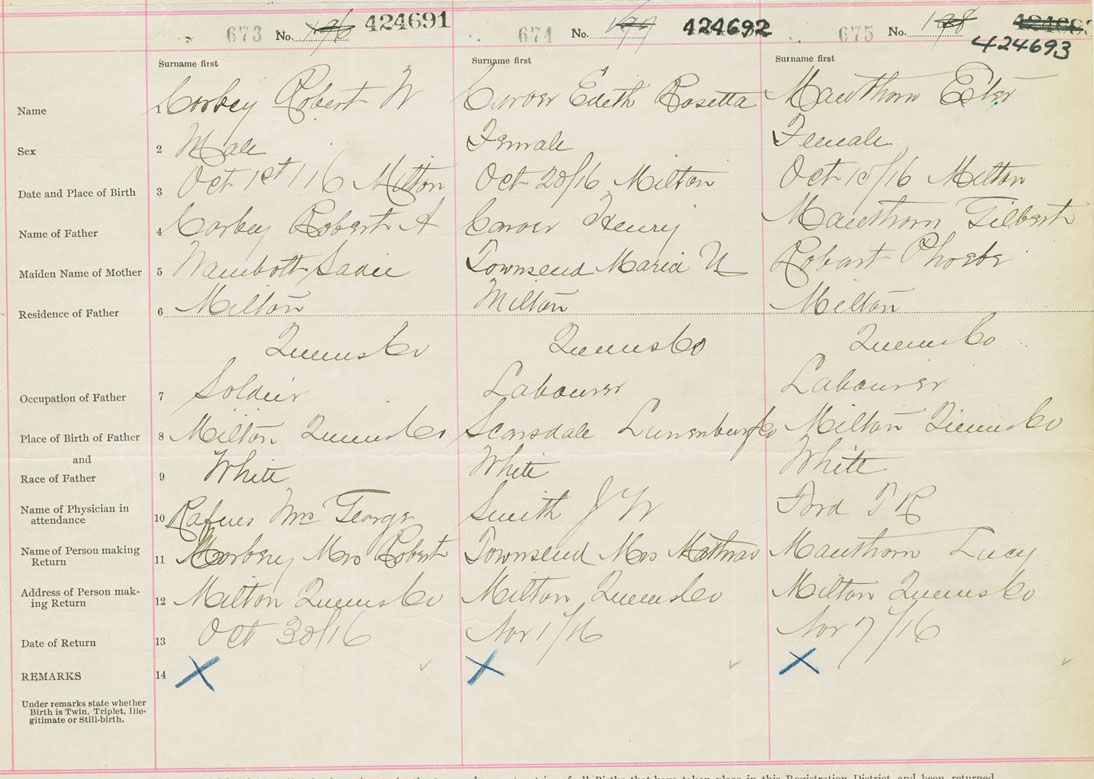 673 No. 196 424691 674 No. 197 424692 675 No. 198 424693
424693
Surname first Surname first Surname first
Name 1 Corbey Robert W Carver Edith Rosetta Mawthorn Ester
Sex 2 Male Female Female
Date and Place of Birth 3 Oct 1st/16 Milton Oct 20/16 Milton Oct 15/16 Milton
Name of Father 4 Corbey Robert A Carver Henry Mawthorn Gilbert
Maiden Name of Mother 5 Sadie Townsend Maria U Robart Phoebe
Residence of Father 6 Milton Milton Milton
Queens Co Queens Co Queens Co
Occupation of Father 7 Soldier Labourer Labourer
Place of Birth of Father 8 Milton Queens Co Scarsdale Lunenburg Co Milton Queens Co
and
Race of Father 9 White White White
Name of Physician in
attendance 10 Mc George Smith J W Ford T R
Name of Person making
Return 11 Mrs Robert Townsend Mrs Mawthorn Lucy
Address of Person mak-
ing Return 12 Milton Queens Co Milton Queens Co Milton Queens Co
Date of Return 13 Oct 30/16 Nov 1/16 Nov 7/16
REMARKS 14 X X X
Under remarks state whether
Birth is Twin, Triplet, Ille-
gitimate or Still-birth.
of all Births that have taken place in this Registration District and been returned